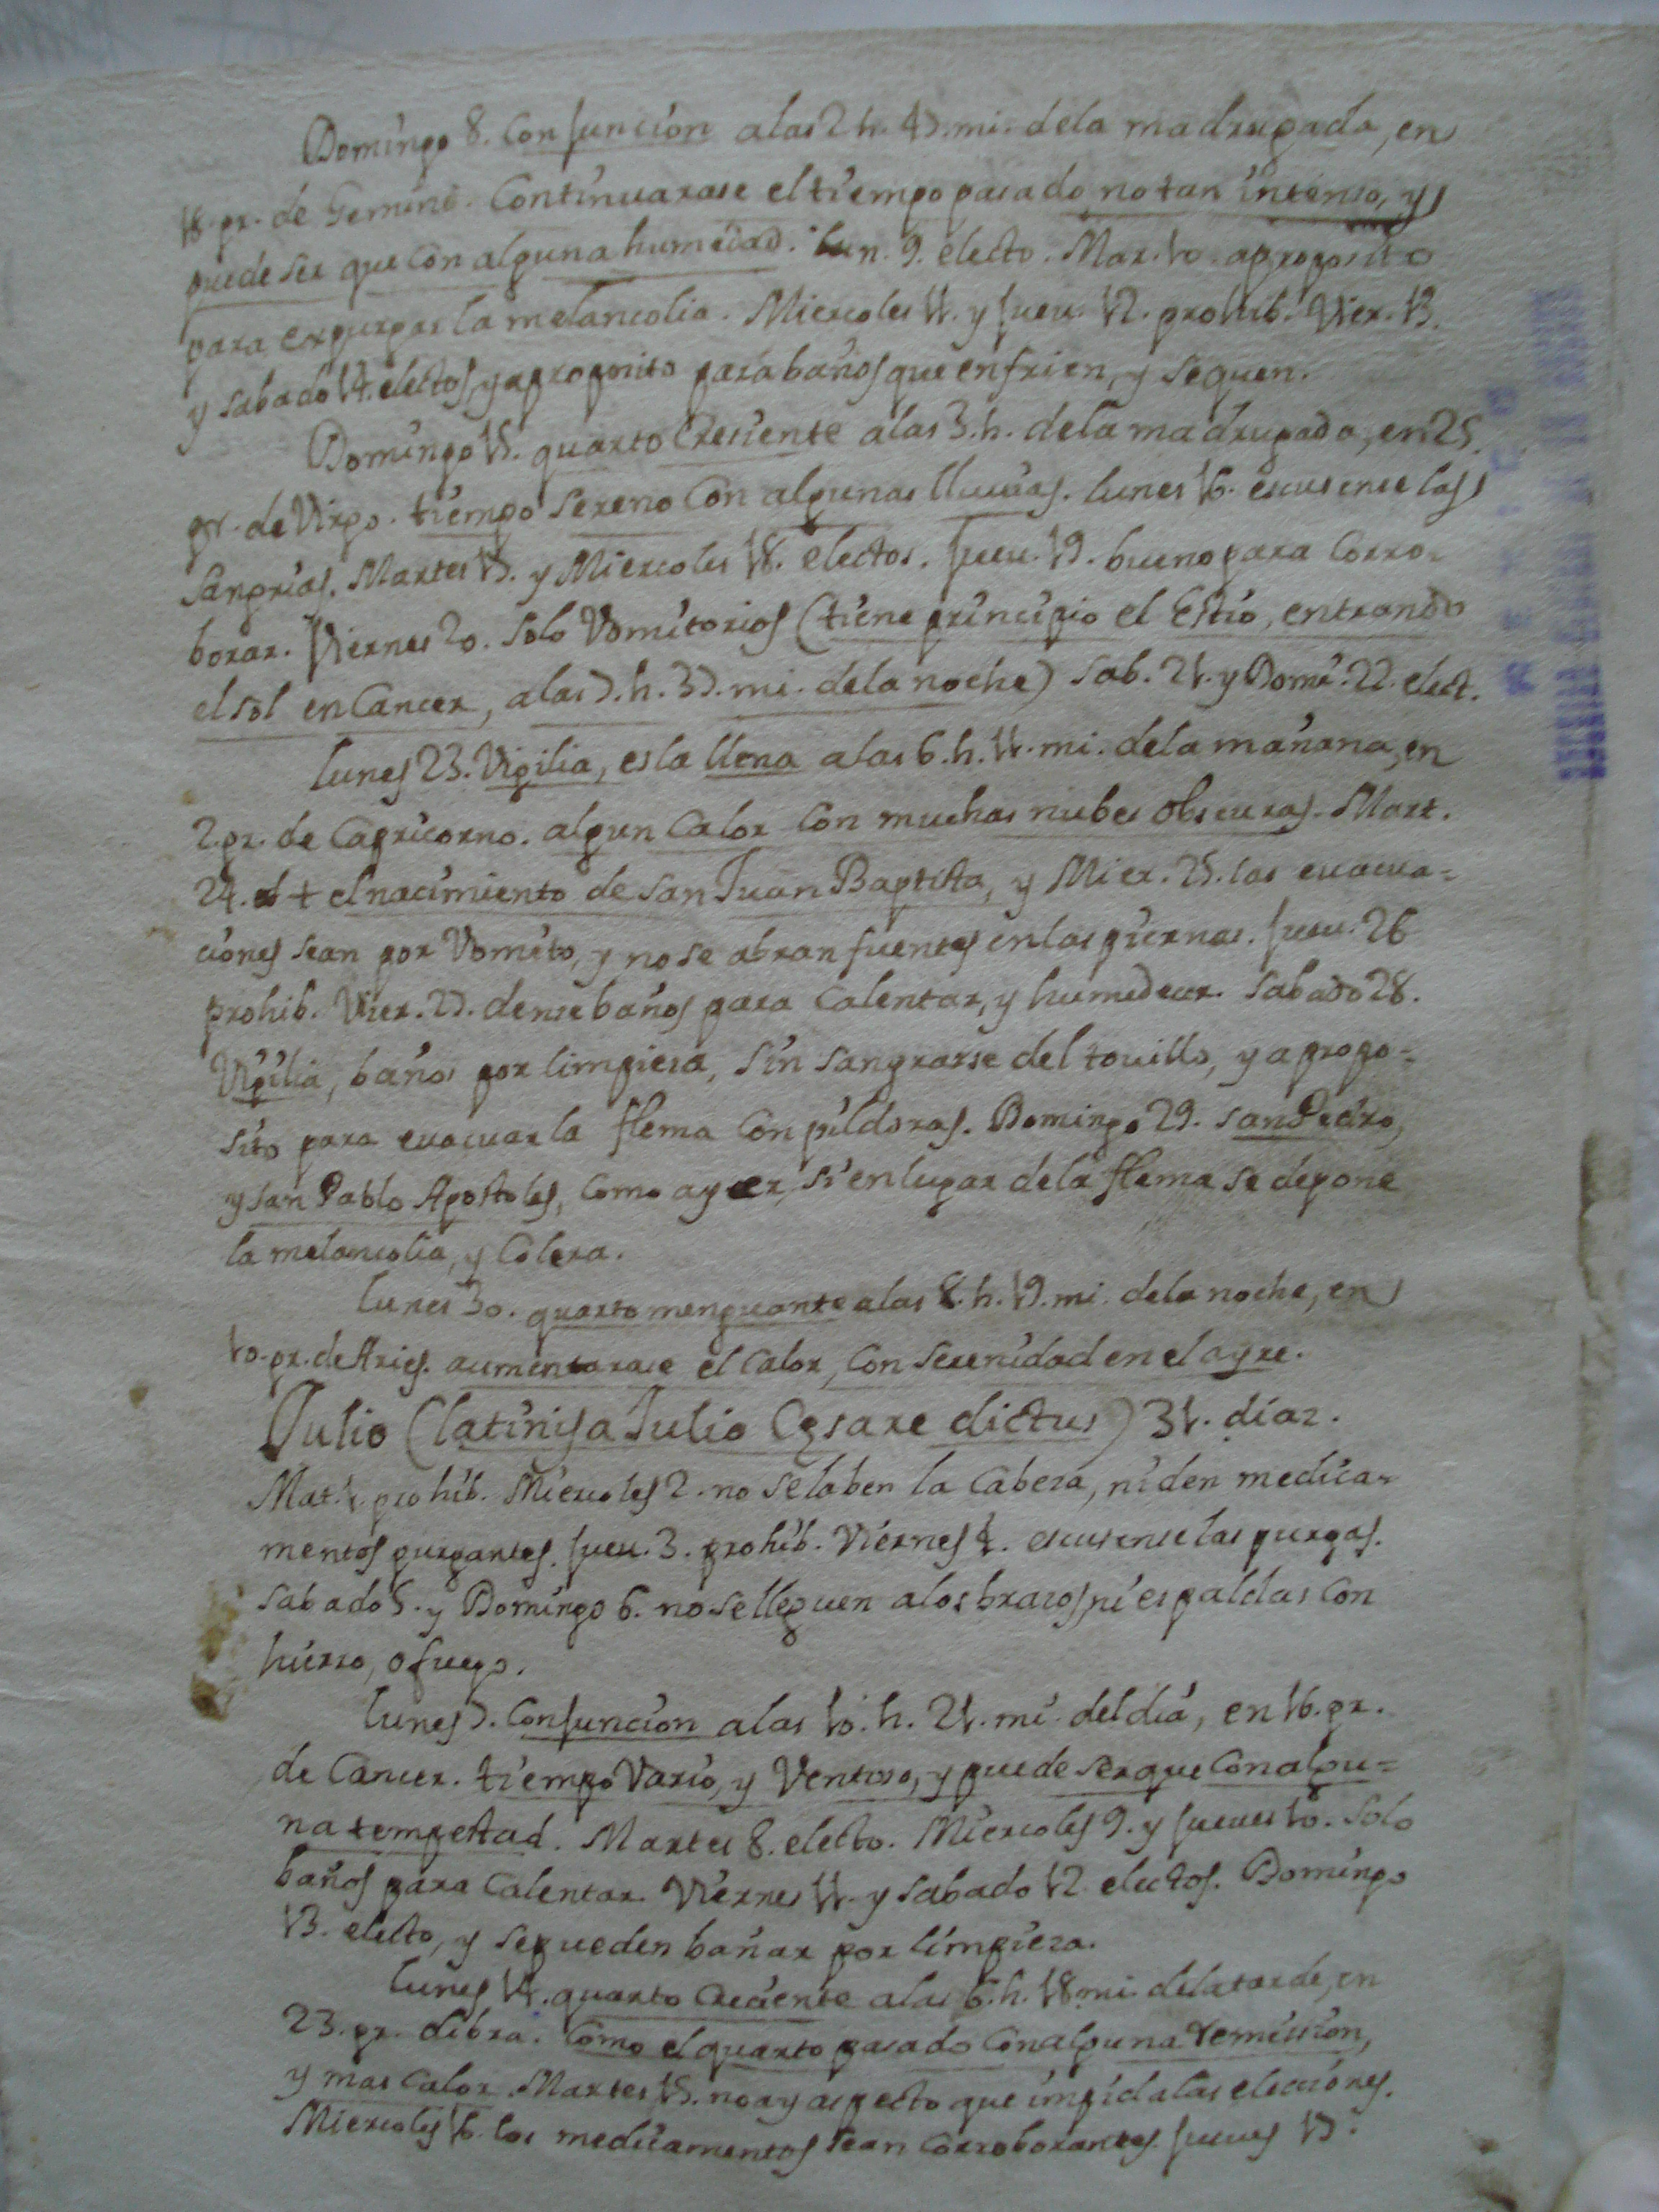 Domingo 8. Conjuncion alas 2 h. 47. mi. dela madrugada, en
18. gr. de Geminis. Continuarase el tiempo pasado, no tan intenso, y
puede ser que con alguna humedad. Lun. 9. electo. Mar. 10. aproposito
para expurgar la melancolia. Miercoles 11. y jueu. 12. prohib. Vier. 13.
y sabado 14. electos, y aproposito para baños que enfrien, y sequen.
Domingo 15. quarto Cresiente alas 3. h. dela madrugada, en 25.
gr. de Virgo. tiempo sereno con algunas lluuias. lunes 16. escusense las
sangrias. Martes 17. y Miercoles 18. electos. jueu. 19. bueno para Corro-
borar. Viernes 20. solo Vomitorios (tiene principio el Estio, entrando
el sol en Cancer, alas 7. h. 37. mi. dela noche) sab. 21. y Domi. 22. elect.
lunes 23. Vigilia, es la llena alas 6. h. 11. mi. dela mañana, en
2. gr. de Capricorno. algun Calor con muchas nubes obscuras. Mart.
24. + el nacimiento de san Juan Baptista, y Mier. 25. las euacua=
ciones sean por Vomito, y no se abran fuentes en las piernas. jueu. 26
prohib. Vier. 27. dense baños para Calentar, y humedecer. sabado 28.
Vigilia, baños por limpiesa, sin sangrarse del touillo, y apropo-
sito para euacuar la flema con pildoras. Domingo 29. san Pedro,
y san Pablo Apostoles, como ayer, si en lugar dela flema se depone
la melancolia, y Colera.
lunes 30. quarto menguante alas 8. h. 19. mi. dela noche, en
10. gr. de Aries. aumentarase el Calor, con serenidad en el ayre.
Julio (latinis a Julio Cęsare dictus) 31. dias.
Mart. 1. prohib. Miercoles 2. no se laben la Cabesa, ni den medica-
mentos purgantes. jueu. 3. prohib. Viernes 4. escusense las purgas.
sabado 5. y Domingo 6. no se lleguen a los brasos, ni espaldas con
hierro, o fuego.
lunes 7. Conjuncion alas 10. h. 21. mi. del dia, en 16. gr.
de Cancer. tiempo Vario, y Ventoso, y puede ser que con algu=
na tempestad. Martes 8. electo. Miercoles 9. y jueues 10. solo
baños para Calentar. Viernes 11. y sabado 12. electos. Domingo
13. electo, y se pueden bañar por limpiesa.
lunes 14. quarto Creciente alas 6. h. 18 mi. dela tarde, en
23. gr. de libra. como el quarto pasado con alguna remission,
y mas Calor. Martes 15. no ay aspecto que impida las elecciones.
Miercoles 16. los medicamentos sean Corroborantes. jueues 17.